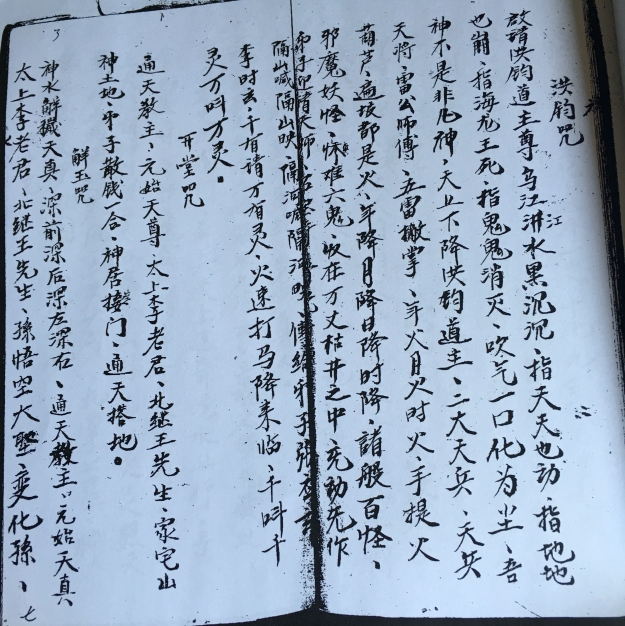 洪钧咒
启请洪钧道主尊、乌江洪水黑沉沉、指天天也动、指地地
江
也崩、指海龙王死、指鬼鬼消灭、吹气一口化为尘、吾
神不是非凡神、天上下降洪钧道主、二大天兵、天兵
天将雷公师傅、五雷掌、年火月火时火手提火
葫芦、遍放都是火、年降月降日降时降、诸般百怪、
邪魔妖怪、难六鬼、收在万丈枯井之中、先动先作
隔山喊隔山映、隔河喊隔河、传给弟子张
李时玄、千有请万有灵、火速打马降来临、千叫千
灵万叫万灵。
开堂咒
通天教主、元始天尊、太上李老君、北继王先生、家宅山
神土地、弟子散钱一合、神居接门、通天搭地。
解玉咒
神水解秽天真、深前深后深左深右、通天教主、元始天真、
太上李老君、北继王先生、孙悟空大圣、变化孙、
七